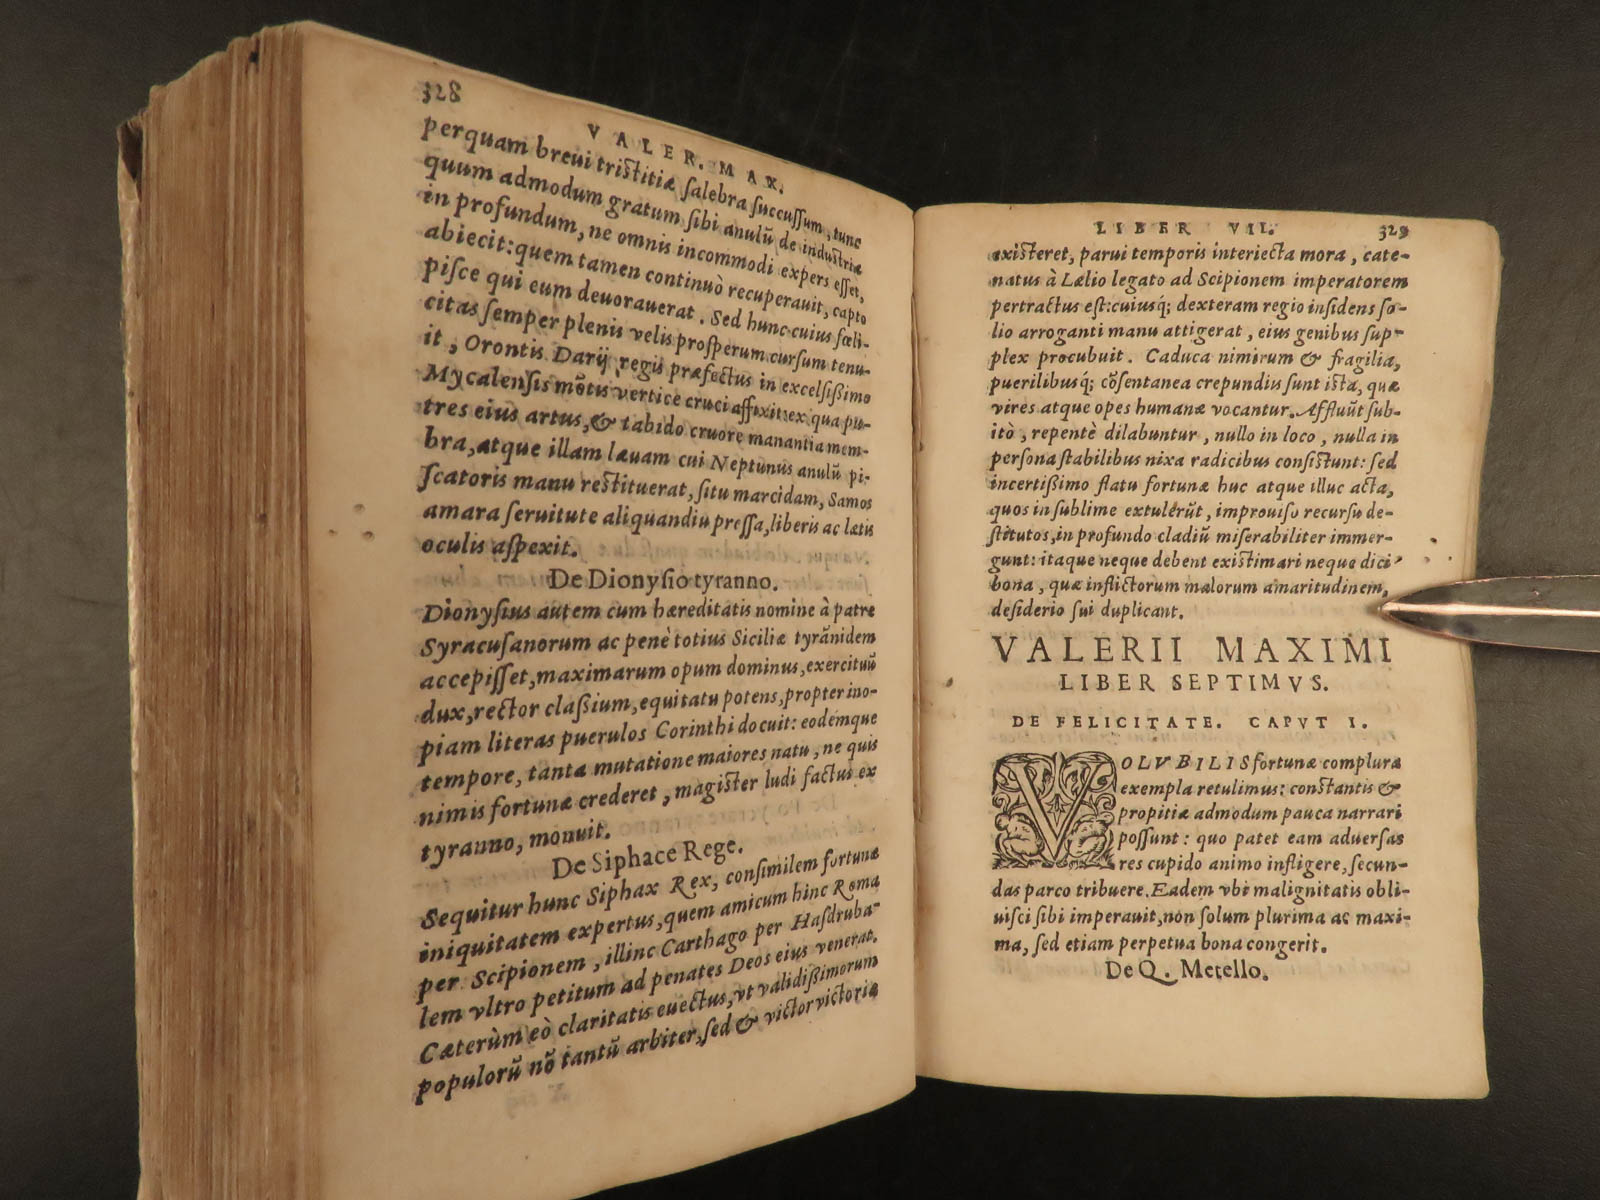 328
VALER. MAX.
perquam breui tristitiæ salebra succussum, tunc
quum admodum gratum sibi anulū de industria
in profundum, ne omnis incommodi expers esset,
abiecit: quem tamen continuò recuperauit, capto
pisce qui eum deuorauerat. Sed hunc cuius fœli-
citas semper plenis velis prosperum cursum tenu-
it, Orontis Darij regis præfectus in excelsißimo
Mycalensis mōtis vertice cruci affixit: ex qua pu-
tres eius artus, & tabido cruore manantia mem-
bra, atque illam læuam cui Neptunus anulū pi-
scatoris manu restituerat, situ marcidam, Samos
amara seruitute aliquandiu pressa, liberis ac lætis
oculis aspexit.
De Dionysio tyranno.
Dionysius autem cum hæreditatis nomine à patre
Syracusanorum ac penè totius Siciliæ tyrānidem
accepisset, maximarum opum dominus, exercituū
dux, rector claßium, equitatu potens, propter ino-
piam literas puerulos Corinthi docuit: eodémque
tempore, tanta mutatione maiores natu, ne quis
nimis fortunæ crederet, magister ludi factus ex
tyranno, monuit.
De Siphace Rege.
Sequitur hunc Siphax Rex, consimilem fortunæ
iniquitatem expertus, quem amicum hinc Roma
per Scipionem, illinc Carthago per Hasdruba-
lem vltro petitum ad penates Deos eius venerat.
Cæterùm eò claritatis euectus, vt validißimorum
populorū nō tantū arbiter, sed & victor victoriæ
LIBER VII.
329
existeret, parui temporis interiecta mora, cate-
natus à Lælio legato ad Scipionem imperatorem
pertractus est: cuiusq́; dexteram regio insidens so-
lio arroganti manu attigerat, eius genibus sup-
plex procubuit. Caduca nimirum & fragilia,
puerilibusq́; cōsentanea crepundiis sunt ista, quæ
vires atque opes humanæ vocantur. Affluūt sub-
itò, repentè dilabuntur, nullo in loco, nulla in
persona stabilibus nixa radicibus consistunt: sed
incertißimo flatu fortunæ huc atque illuc acta,
quos in sublime extulerūt, improuiso recursu de-
stitutos, in profundo cladiū miserabiliter immer-
gunt: itaque neque debent existimari neque dici
bona, quæ inflictorum malorum amaritudinem,
desiderio sui duplicant.
VALERII MAXIMI
LIBER SEPTIMVS.
DE FELICITATE. CAPVT I.
VOLVBILIS fortunæ complura
exempla retulimus: constantis &
propitiæ admodum pauca narrari
possunt: quo patet eam aduersas
res cupido animo infligere, secun-
das parco tribuere. Eadem vbi malignitatis obli-
uisci sibi imperauit, non solum plurima ac maxi-
ma, sed etiam perpetua bona congerit.
De Q. Metello.